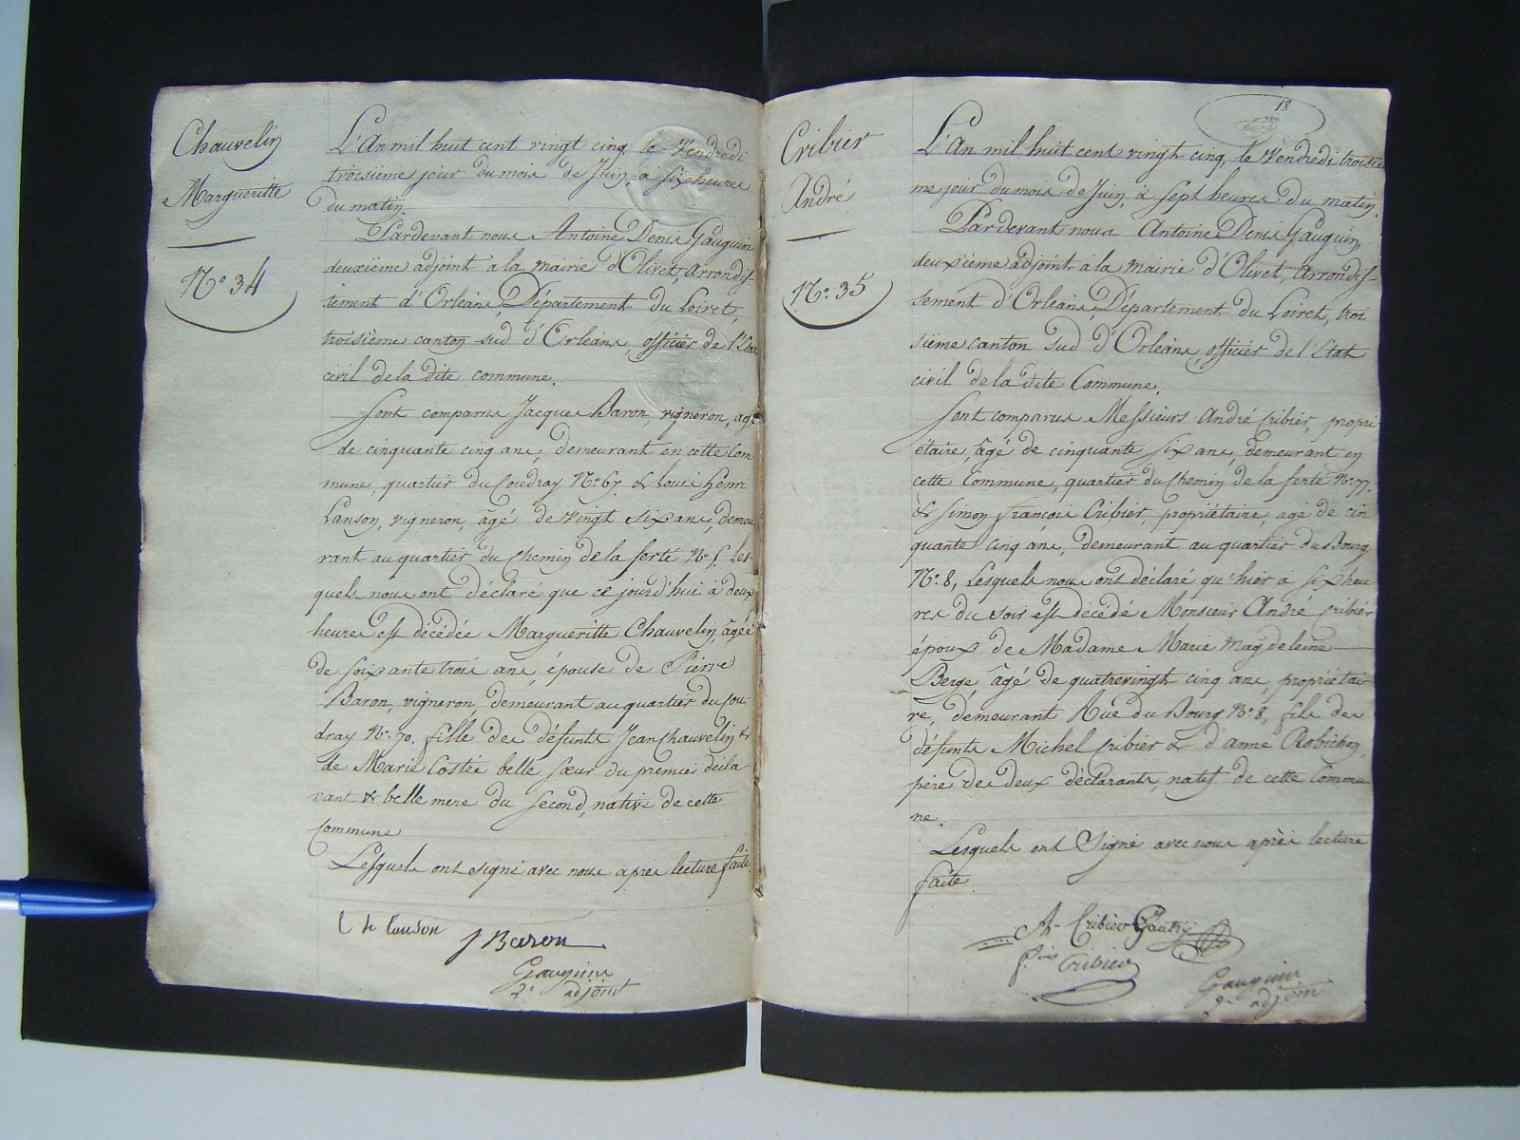 Chauvelin
Margueritte
N.o 34
L'An mil huit cent vingt cinq, le vendredi
troisième jour du mois de Juin, à six heures
du matin.
Pardevant nous Antoine Denis Gauguin
deuxième adjoint à la mairie d'Olivet, arrondis-
sement d'Orléans, Département du Loiret,
troisième canton sud d'Orléans, officier de l'Etat
civil de la dite commune.
Sont comparus Jacques Baron, vigneron, agé
de cinquante cinq ans, demeurant en cette Com
mune, quartier du Coudray N.o 67. & Louis henri
Lanson, vigneron, âgé de vingt six ans, demeu
rant au quartier du chemin de la ferté N.o 5. Les-
quels nous ont déclaré que ce jourd'hui à deux
heures est décédée Margueritte Chauvelin, âgée
de soixante trois ans, épouse de Pierre
Baron, vigneron, demeurant au quartier du Cou-
dray N.o 70. fille des défunts Jean Chauvelin &
de Marie Costée belle sœur du premier décla
rant & belle mere du second, native de cette
Commune
Lesquels ont signé avec nous après lecture faite.
L he Lanson
J Baron
Gauguin
2.e adjoint
18
Cribier
André
N.o 35
L'An mil huit cent vingt cinq, le vendredi troisiè
me jour du mois de Juin, à sept heures du matin.
Pardevant nous Antoine Denis Gauguin,
deuxième adjoint à la mairie d'Olivet, arrondis-
sement d'Orléans, Département du Loiret, troi
sième canton sud d'Orléans, officier de l'Etat
civil de la dite Commune.
Sont comparus Messieurs André Cribier, propri
étaire, âgé de cinquante six ans, demeurant en
cette Commune, quartier du Chemin de la ferté N.o 77.
& Simon françois Cribier, propriétaire, agé de cin
quante cinq ans, demeurant au quartier du Bourg
N.o 8, Lesquels nous ont déclaré qu'hier à six heu
res du soir est décédé Monsieur André Cribier
époux de Madame Marie Magdeleine
Berge âgé de quatrevingt cinq ans, propriétai
re, demeurant Rue du Bourg N.o 8, fils des
défunts Michel Cribier & d'anne Robichon,
père des deux déclarants, natif de cette Commu
ne.
Lesquels ont Signé avec nous après lecture
faite.
Cribier
f.ois Cribier
Gauguin
2.e adjoint